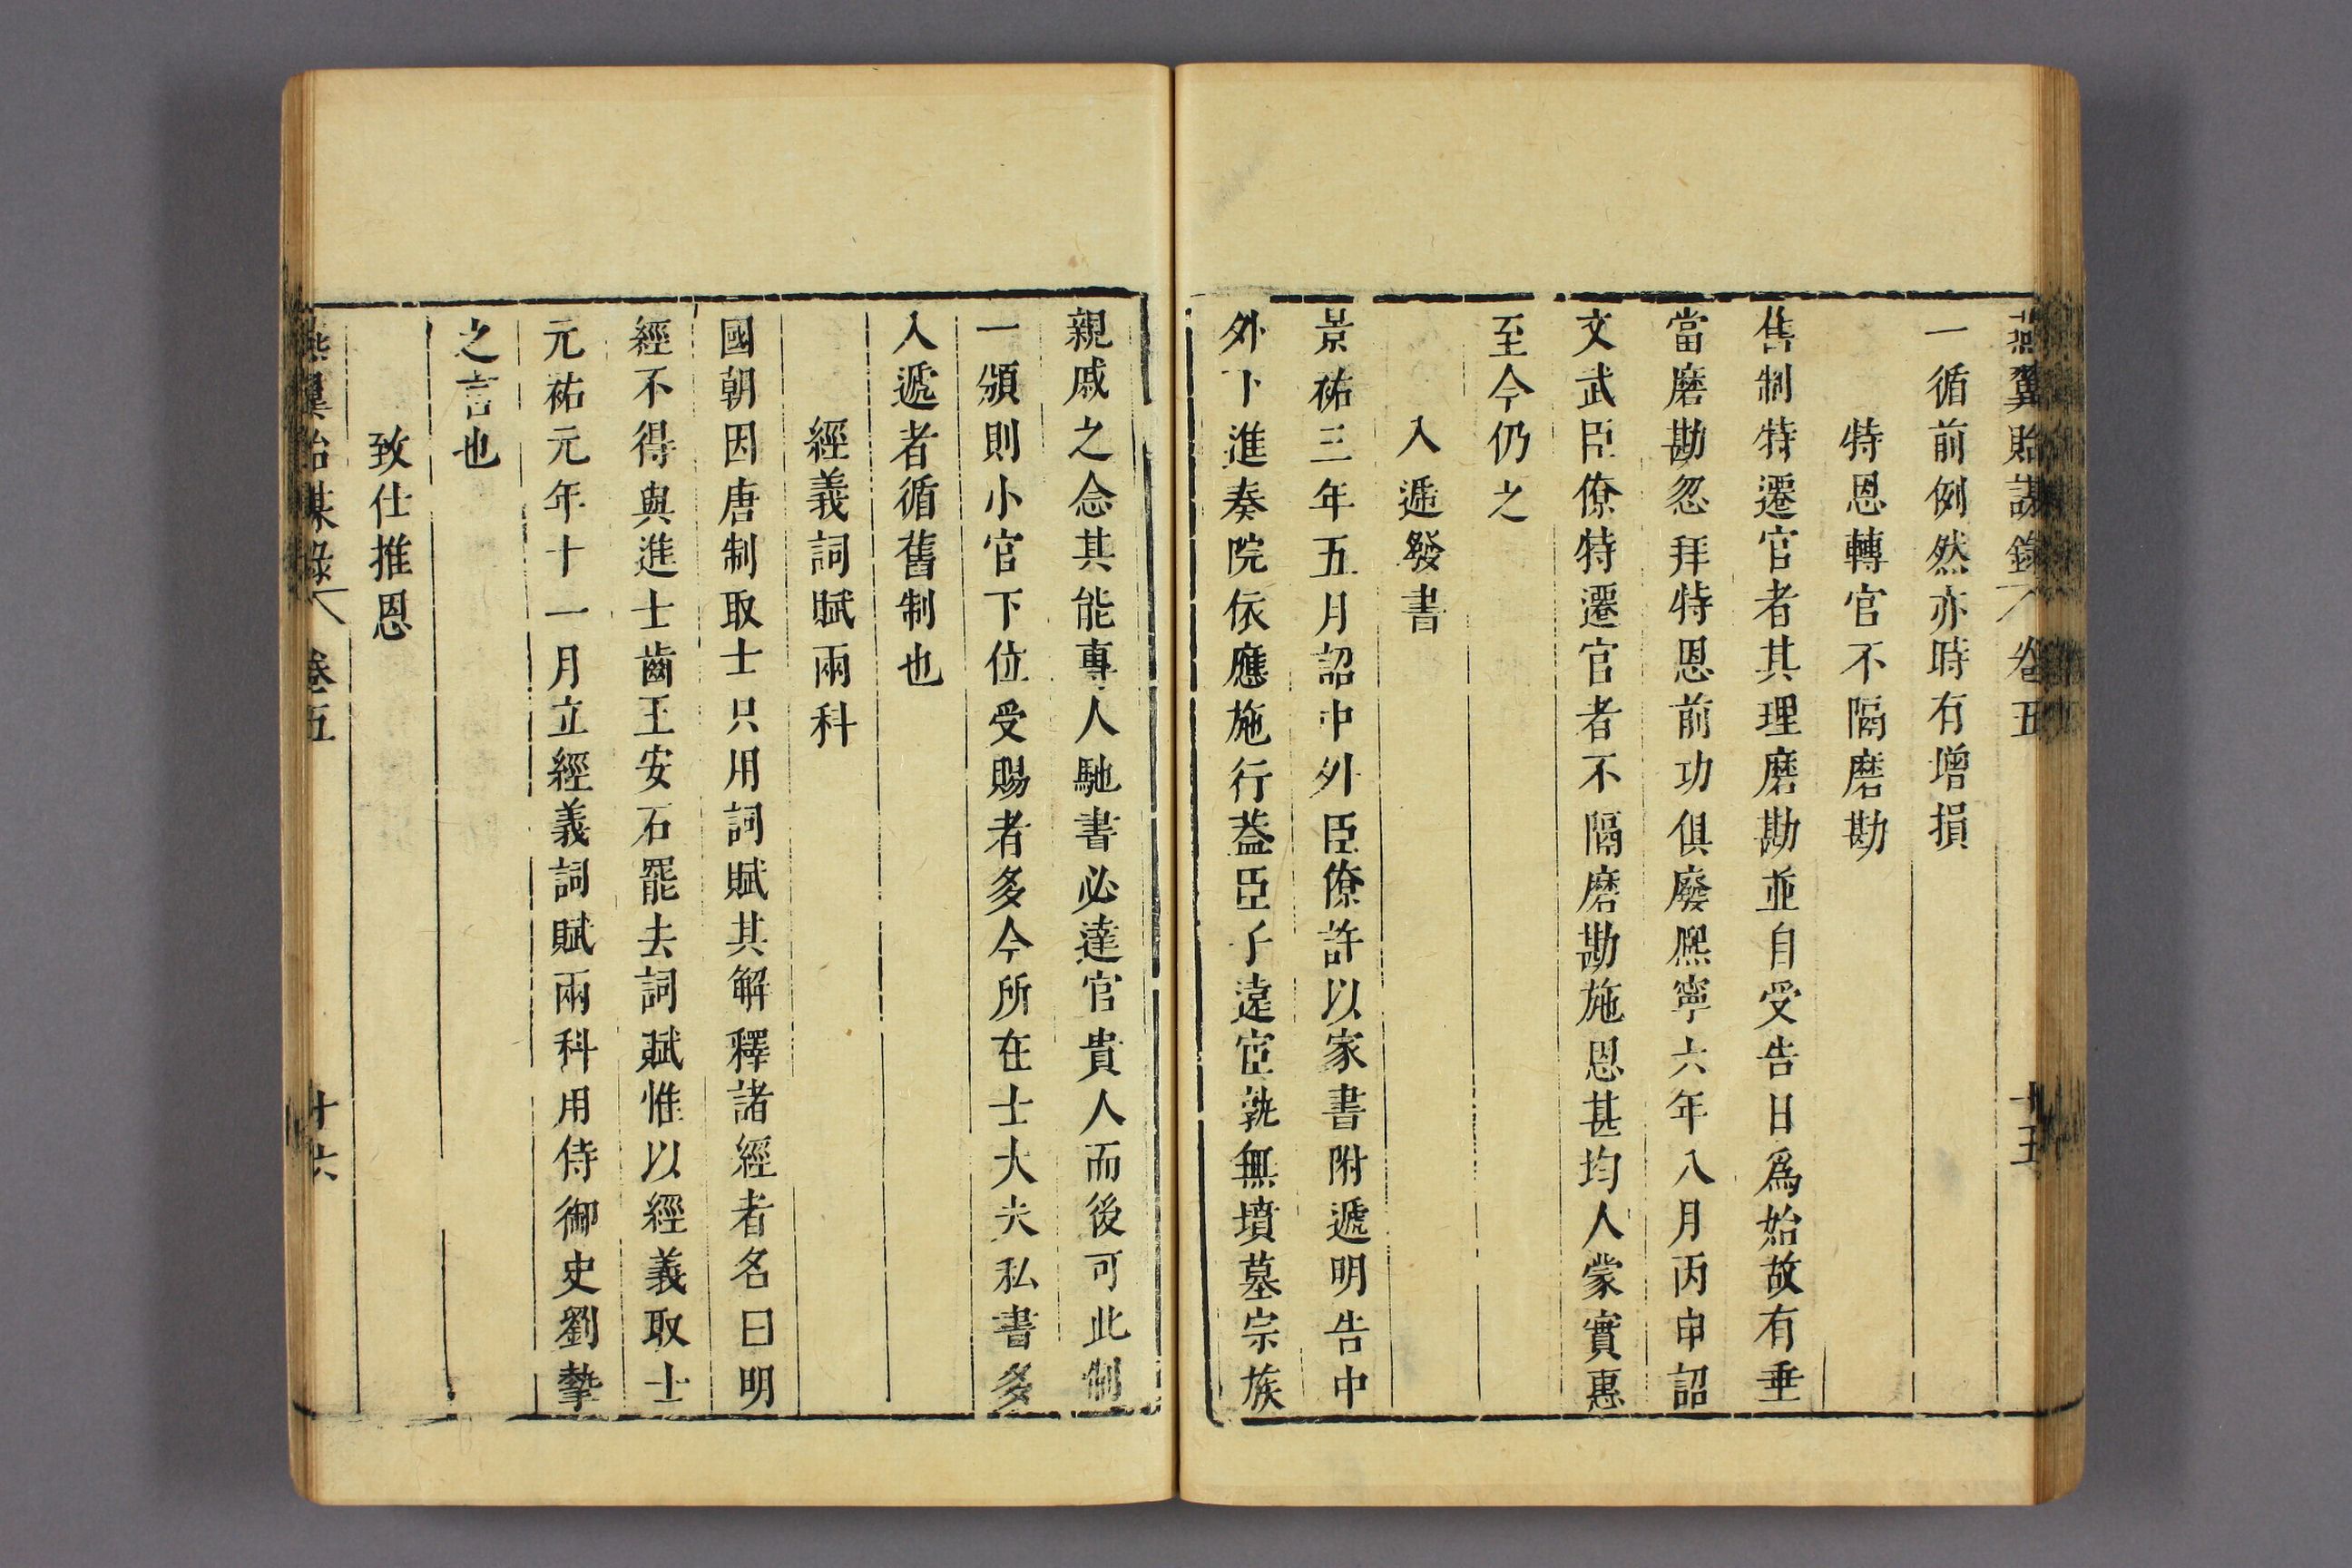 燕翼貽謀錄 卷五 十五
一循前例然亦時有增損
特恩轉官不隔磨勘
舊制特遷官者其理磨勘並自受告日爲始故有垂
當磨勘忽拜特恩前功俱廢熈寧六年八月丙申詔
文武臣僚特遷官者不隔磨勘施恩甚均人蒙實惠
至今仍之
入遞發書
景祐三年五月詔中外臣僚許以家書附遞明告中
外下進奏院依應施行葢臣子遠宦孰無墳墓宗族
親戚之念其能專人馳書必達官貴人而後可此制
一頒則小官下位受賜者多今所在士大夫私書多
入遞者循舊制也
經義詞賦兩科
國朝因唐制取士只用詞賦其解釋諸經者名曰明
經不得與進士齒王安石罷去詞賦惟以經義取士
元祐元年十一月立經義詞賦兩科用侍御史劉摯
之言也
致仕推恩
燕翼貽謀錄 卷五 十六